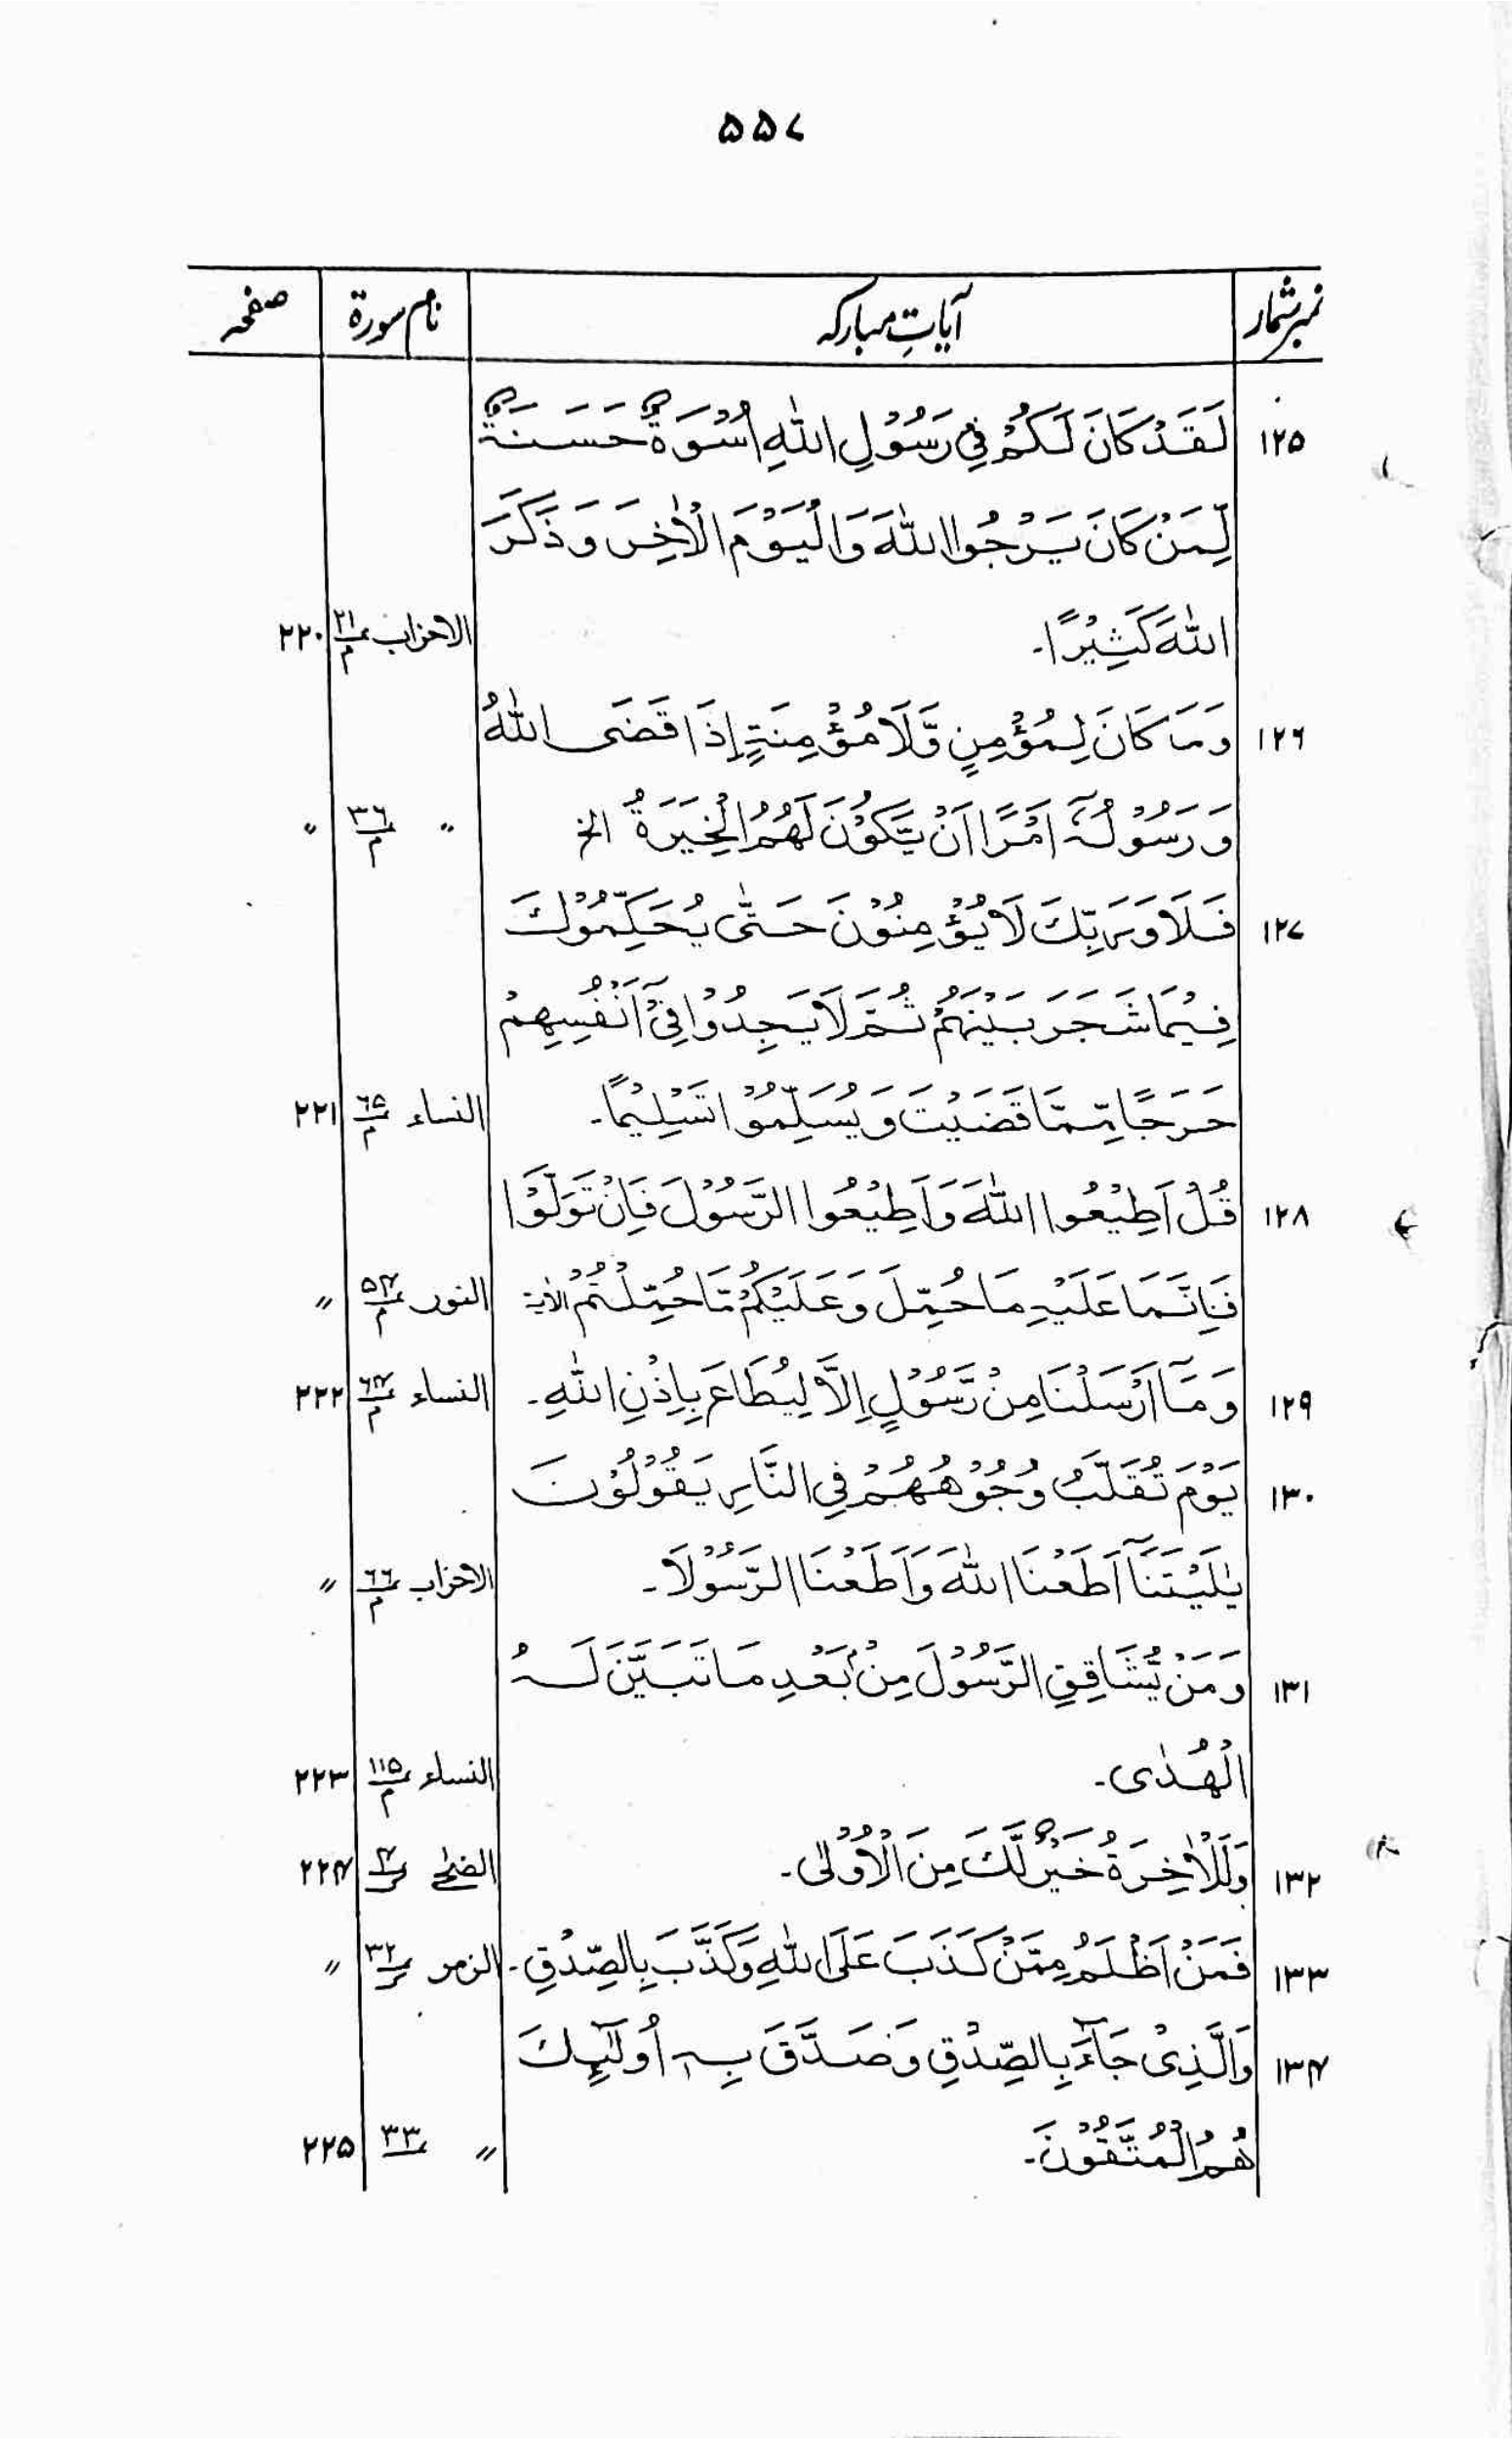 ۵۵۷
نمبر شمار آیاتِ مبارکہ نام سورۃ صفحہ
۱۲۵ لَقَدْ كَانَ لَكُمْ فِیْ رَسُوْلِ اللّٰهِ اُسْوَةٌ حَسَنَةٌ
لِّمَنْ كَانَ یَرْجُوا اللّٰهَ وَالْیَوْمَ الْاٰخِرَ وَذَكَرَ
اللّٰهَ كَثِیْرًا۔ الاحزاب ۲۱/م ۲۲۰
۱۲۶ وَمَا كَانَ لِمُؤْمِنٍ وَّلَا مُؤْمِنَةٍ اِذَا قَضَی اللّٰهُ
وَرَسُوْلُهٗۤ اَمْرًا اَنْ یَّكُوْنَ لَهُمُ الْخِیَرَةُ الخ 〃 ۳۶/م 〃
۱۲۷ فَلَا وَرَبِّكَ لَا یُؤْمِنُوْنَ حَتّٰی یُحَكِّمُوْكَ
فِیْمَا شَجَرَ بَیْنَهُمْ ثُمَّ لَا یَجِدُوْا فِیْۤ اَنْفُسِهِمْ
حَرَجًا مِّمَّا قَضَیْتَ وَیُسَلِّمُوْا تَسْلِیْمًا۔ النساء ۶۵/م ۲۲۱
۱۲۸ قُلْ اَطِیْعُوا اللّٰهَ وَاَطِیْعُوا الرَّسُوْلَ فَاِنْ تَوَلَّوْا
فَاِنَّمَا عَلَیْهِ مَا حُمِّلَ وَعَلَیْكُمْ مَّا حُمِّلْتُمْ الاٰیۃ النور ۵۴/م 〃
۱۲۹ وَمَاۤ اَرْسَلْنَا مِنْ رَّسُوْلٍ اِلَّا لِیُطَاعَ بِاِذْنِ اللّٰهِ۔ النساء ۶۴/م ۲۲۲
۱۳۰ یَوْمَ تُقَلَّبُ وُجُوْهُهُمْ فِی النَّارِ یَقُوْلُوْنَ
یٰلَیْتَنَاۤ اَطَعْنَا اللّٰهَ وَاَطَعْنَا الرَّسُوْلَا۔ الاحزاب ۶۶/م 〃
۱۳۱ وَمَنْ یُّشَاقِقِ الرَّسُوْلَ مِنْۢ بَعْدِ مَا تَبَیَّنَ لَهُ
الْهُدٰی۔ النساء ۱۱۵/م ۲۲۳
۱۳۲ وَلَلْاٰخِرَةُ خَیْرٌ لَّكَ مِنَ الْاُوْلٰی۔ الضحٰی ۴/ک ۲۲۴
۱۳۳ فَمَنْ اَظْلَمُ مِمَّنْ كَذَبَ عَلَی اللّٰهِ وَكَذَّبَ بِالصِّدْقِ۔ الزمر ۳۲/ک 〃
۱۳۴ وَالَّذِیْ جَآءَ بِالصِّدْقِ وَصَدَّقَ بِهٖۤ اُولٰٓئِكَ
هُمُ الْمُتَّقُوْنَ۔ 〃 ۳۳ ۲۲۵